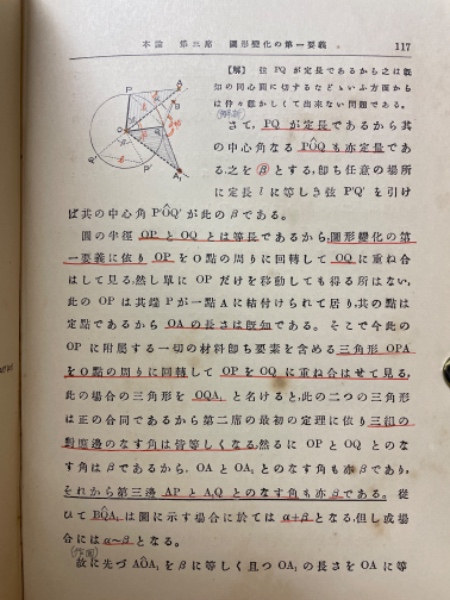 本論 第二席 圖形變化の第一要義 117
【解】 弦 PQ が定長であるから之は既
知の同心圓に切するなどといふ方面から
は仲々難かしくて出來ない問題である。
(解析)
さて, PQ が定長であるから其
の中心角なる PÔQ も亦定量であ
る之を β とする,卽ち任意の場所
に定長 l に等しき弦 P'Q' を引け
ば其の中心角 P'ÔQ' が此の β である。
圓の半徑 OP と OQ とは等長であるから,圖形變化の第
一要義に依り OP を O 點の周りに回轉して OQ に重ね合
はして見る,然し單に OP だけを移動しても得る所はない,
此の OP は其端 P が一點 A に結付けられて居り,其の點は
定點であるから OA の長さは既知である。 そこで今此の
OP に附屬する一切の材料卽ち要素を含める三角形 OPA
を O 點の周りに回轉して OP を OQ に重ね合はせて見る,
此の場合の三角形を OQA₁ と名けると,此の二つの三角形
は正の合同であるから第二席の最初の定理に依り三組の
對應邊のなす角は皆等しくなる,然るに OP と OQ とのな
す角は β であるから, OA と OA₁ とのなす角も亦 β であり,
それから第三邊 AP と A₁Q とのなす角も亦 β である。 從
ひて BQ̂A₁ は圖に示す場合に於ては α+β となる,但し或場
合には α~β となる。
(作圖)
故に先づ AÔA₁ を β に等しく且つ OA₁ の長さを OA に等